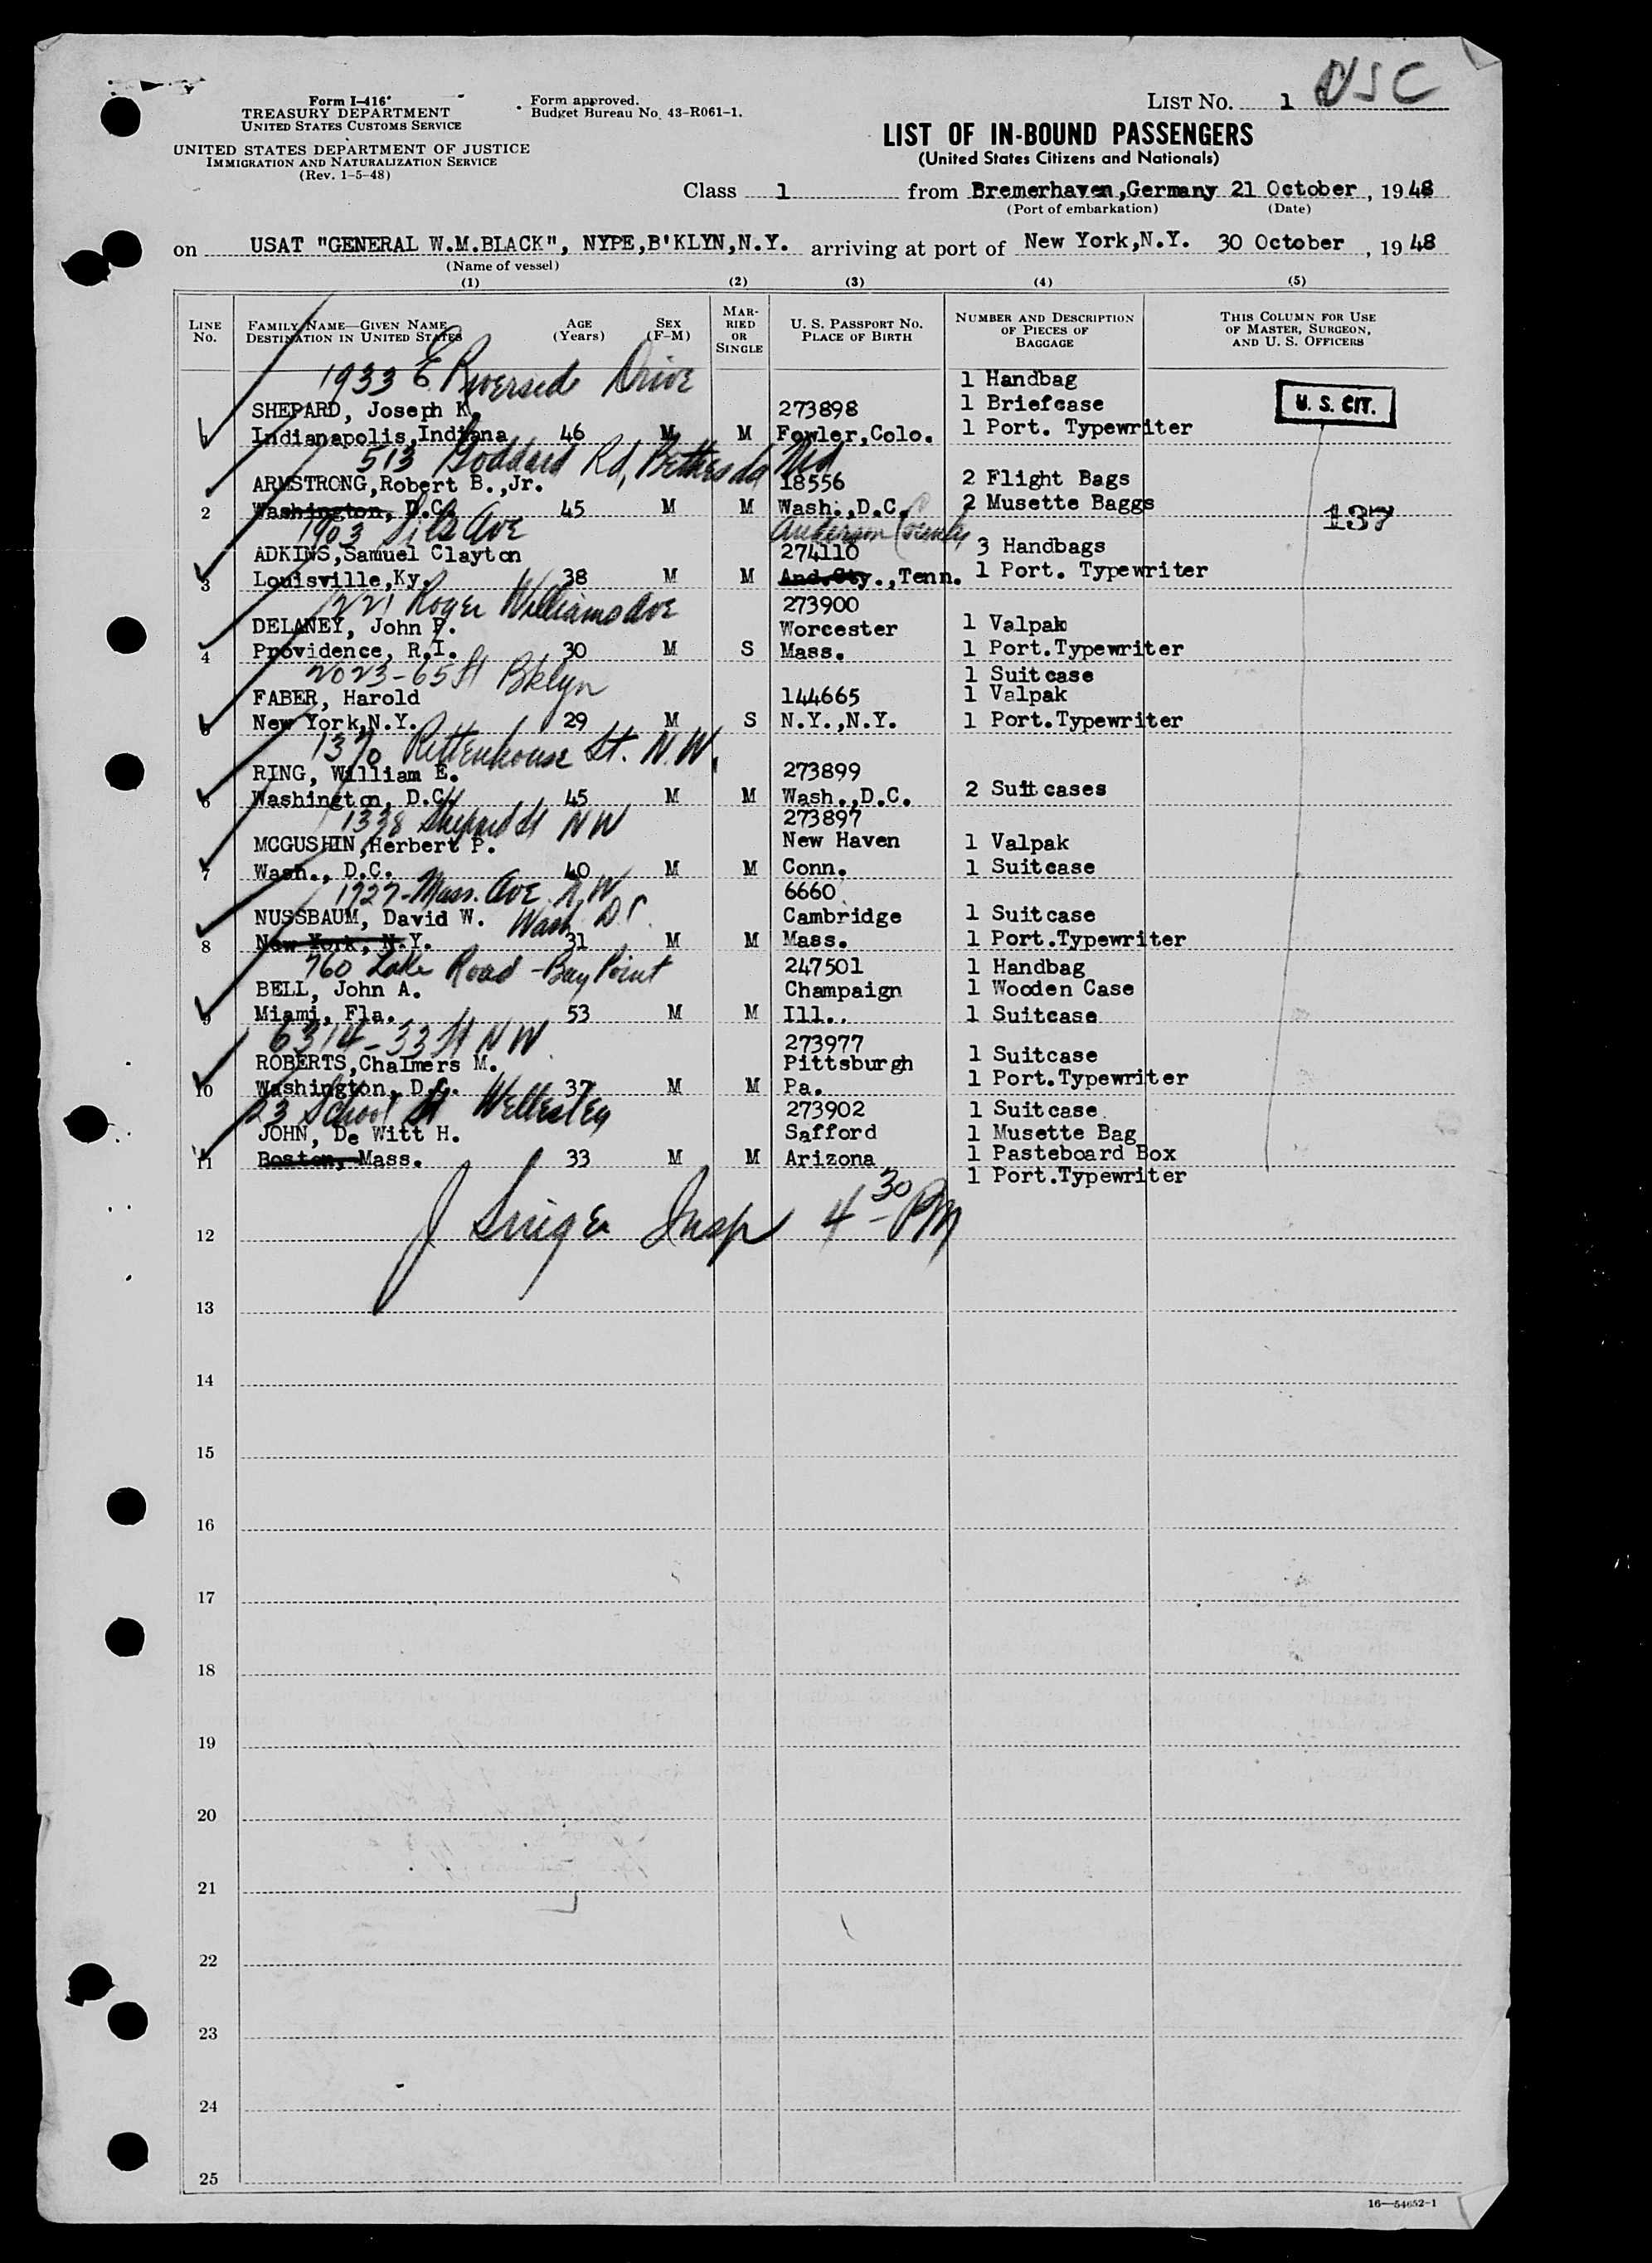 Form I-416
TREASURY DEPARTMENT
UNITED STATES CUSTOMS SERVICE
UNITED STATES DEPARTMENT OF JUSTICE
IMMIGRATION AND NATURALIZATION SERVICE
(Rev. 1-5-48)
Form approved.
Budget Bureau No. 43-R061-1.
LIST No. 1 USC
LIST OF IN-BOUND PASSENGERS
(United States Citizens and Nationals)
Class 1 from Bremerhaven,Germany 21 October, 1948
(Port of embarkation) (Date)
on USAT "GENERAL W.M.BLACK", NYPE,B'KLYN,N.Y. arriving at port of New York,N.Y. 30 October, 1948
(Name of vessel)
(1) (2) (3) (4) (5)
LINE No. FAMILY NAME—GIVEN NAME DESTINATION IN UNITED STATES AGE (Years) SEX (F-M) MARRIED OR SINGLE U. S. PASSPORT No. PLACE OF BIRTH NUMBER AND DESCRIPTION OF PIECES OF BAGGAGE THIS COLUMN FOR USE OF MASTER, SURGEON, AND U. S. OFFICERS
1933 E Riverside Drive 1 Handbag
SHEPARD, Joseph K. 273898 1 Briefcase U. S. CIT.
1 Indianapolis,Indiana 46 M M Fowler,Colo. 1 Port. Typewriter
513 Goddard Rd, Bethesda Md
ARMSTRONG,Robert B.,Jr. 18556 2 Flight Bags
2 Washington, D.C. 45 M M Wash.,D.C. 2 Musette Baggs 137
1903 Ave Anderson County
ADKINS,Samuel Clayton 274110 3 Handbags
3 Louisville,Ky. 38 M M And.Cty.,Tenn. 1 Port. Typewriter
1221 Roger Williams Ave 273900
DELANEY, John P. Worcester 1 Valpak
4 Providence, R.I. 30 M S Mass. 1 Port.Typewriter
2023-65 St Bklyn 1 Suitcase
FABER, Harold 144665 1 Valpak
5 New York,N.Y. 29 M S N.Y.,N.Y. 1 Port.Typewriter
1370 Rittenhouse St. N.W.
RING, William E. 273899
6 Washington, D.C. 45 M M Wash.,D.C. 2 Suitcases
1338 Shepherd St NW 273897
MCGUSHIN,Herbert P. New Haven 1 Valpak
7 Wash., D.C. 40 M M Conn. 1 Suitcase
1727-Mass. Ave N.W. 6660
NUSSBAUM, David W. Wash DC Cambridge 1 Suitcase
8 New York, N.Y. 31 M M Mass. 1 Port.Typewriter
760 Lake Road - Bay Point 247501 1 Handbag
BELL, John A. Champaign 1 Wooden Case
9 Miami, Fla. 53 M M Ill.. 1 Suitcase
6314-33 St NW 273977
ROBERTS,Chalmers M. Pittsburgh 1 Suitcase
10 Washington, D.C. 37 M M Pa. 1 Port.Typewriter
23 School St Wellesley 273902 1 Suitcase
JOHN, De Witt H. Safford 1 Musette Bag
11 Boston, Mass. 33 M M Arizona 1 Pasteboard Box
1 Port.Typewriter
12 J Insp 4 30 PM
13
14
15
16
17
18
19
20
21
22
23
24
25
16—54652-1